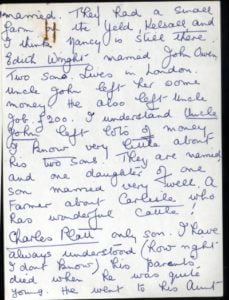 married. They had a small
farm in the Yeld, Kelsall and
I think Nancy is still there.
Edith Wright married John Owen
Two sons. Lives in London.
Uncle John left her some
money He also left Uncle
Job £200. I understand Uncle
John left lots of money.
I know very little about
his two sons. They are named
and one daughter of one
son married very well. A
Farmer about Carlisle who
has wonderful Cattle!
Charles Platt only son. I have
always understood (how right
I don't know) his parents
died when he was quite
young. He went to his Aunt